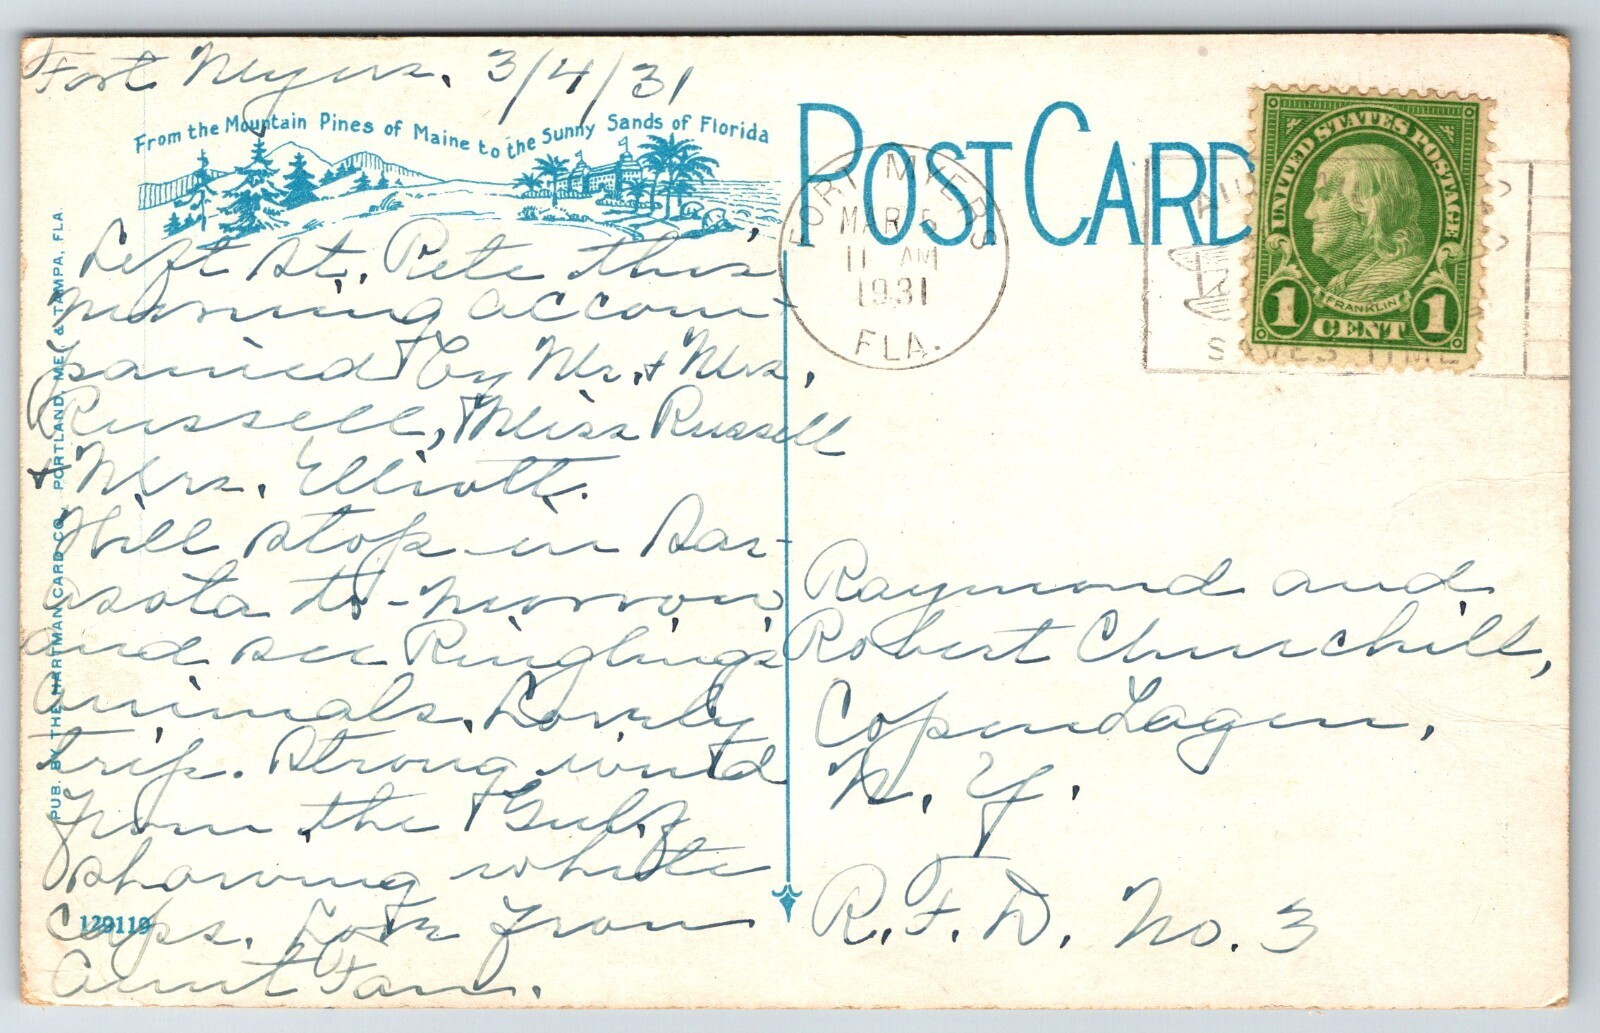 Fort Myers, 3/4/31
From the Mountain Pines of Maine to the Sunny Sands of Florida
Left St. Pete this
morning accom-
panied by Mr. + Mrs.
Russell, Miss Russell
+ Mrs. Elliott.
Will stop in Sar-
asota to-morrow
and see Ringling's
animals. Lovely
trip. Strong wind
from the Gulf
showing white
caps. Love from
Aunt Fan.
129119
PUB. BY THE HARTMAN CARD CO., PORTLAND, ME. & TAMPA, FLA.
POST CARD
FORT MYERS
MAR 5
11 AM
1931
FLA.
AIR
SAVES TIME
UNITED STATES POSTAGE
FRANKLIN
1 CENT 1
Raymond and
Robert Churchill,
Copenhagen,
N. Y.
R. F. D. No. 3